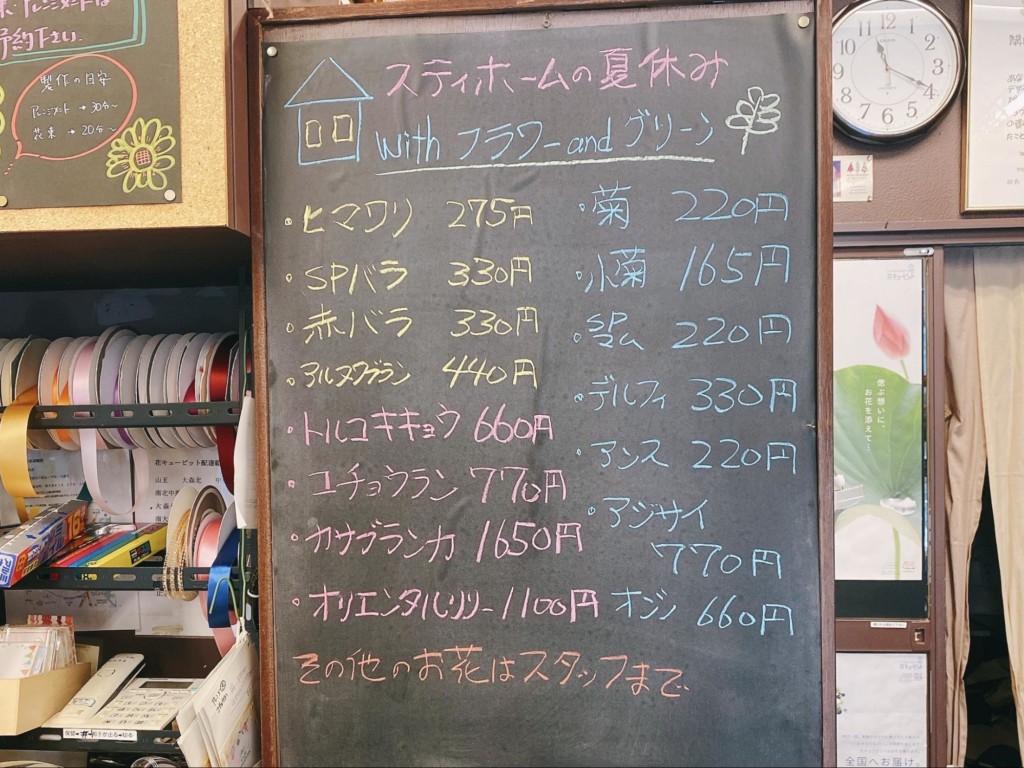 予約下さい.
製作の目安
アレンジメント → 30分~
花束 → 20分~
スティホームの夏休み
with フラワー and グリーン
・ヒマワリ 275円
・SPバラ 330円
・赤バラ 330円
440円
・トルコキキョウ 660円
・コチョウラン 770円
・カサブランカ 1650円
・オリエンタルリリー 1100円
・菊 220円
・小菊 165円
220円
・デルフィ 330円
・アンス 220円
・アジサイ
770円
オジン 660円
その他のお花はスタッフまで
12
1
2
3
4
5
6
7
8
9
10
11
偲ぶ想いに、
お花を添えて。
花キューピット配達
山王 大森北
全国へお届け。